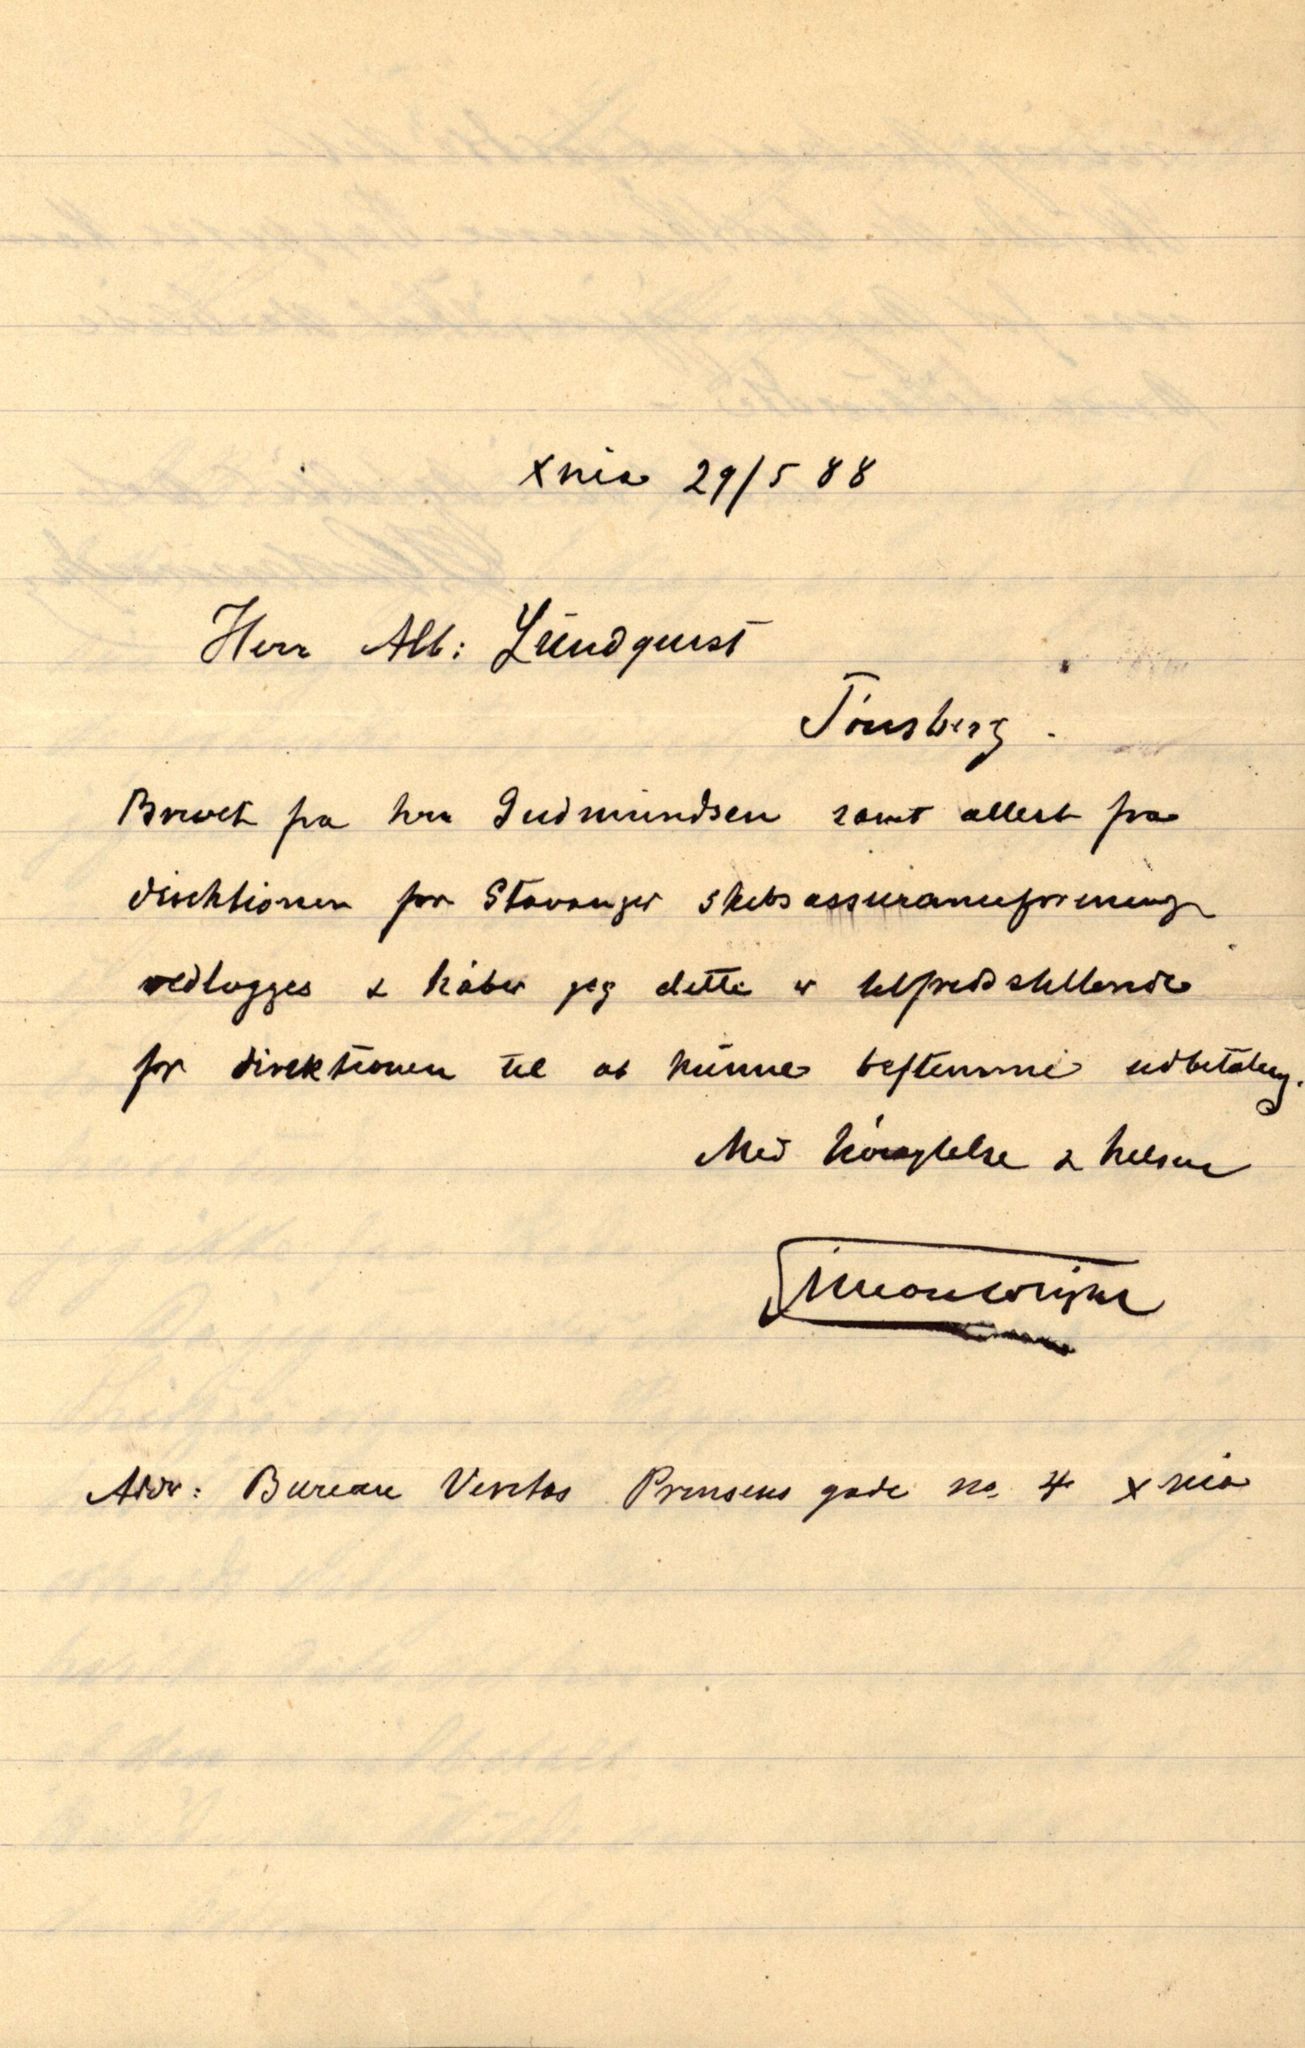 Xnia 29/5 88
Herr Alb: Lundquist
Tönsberg.
Brevet fra hrr Gudmundsen samt attest fra
direktionen for Stavanger skibsassuranceforening
vedlægges & håber jeg dette er tilfredsstillende
for direktionen til at kunne bestemme udbetaling.
Med högagtelse & hilsen
Adr: Bureau Veritas Prinsens gade no 4 Xnia